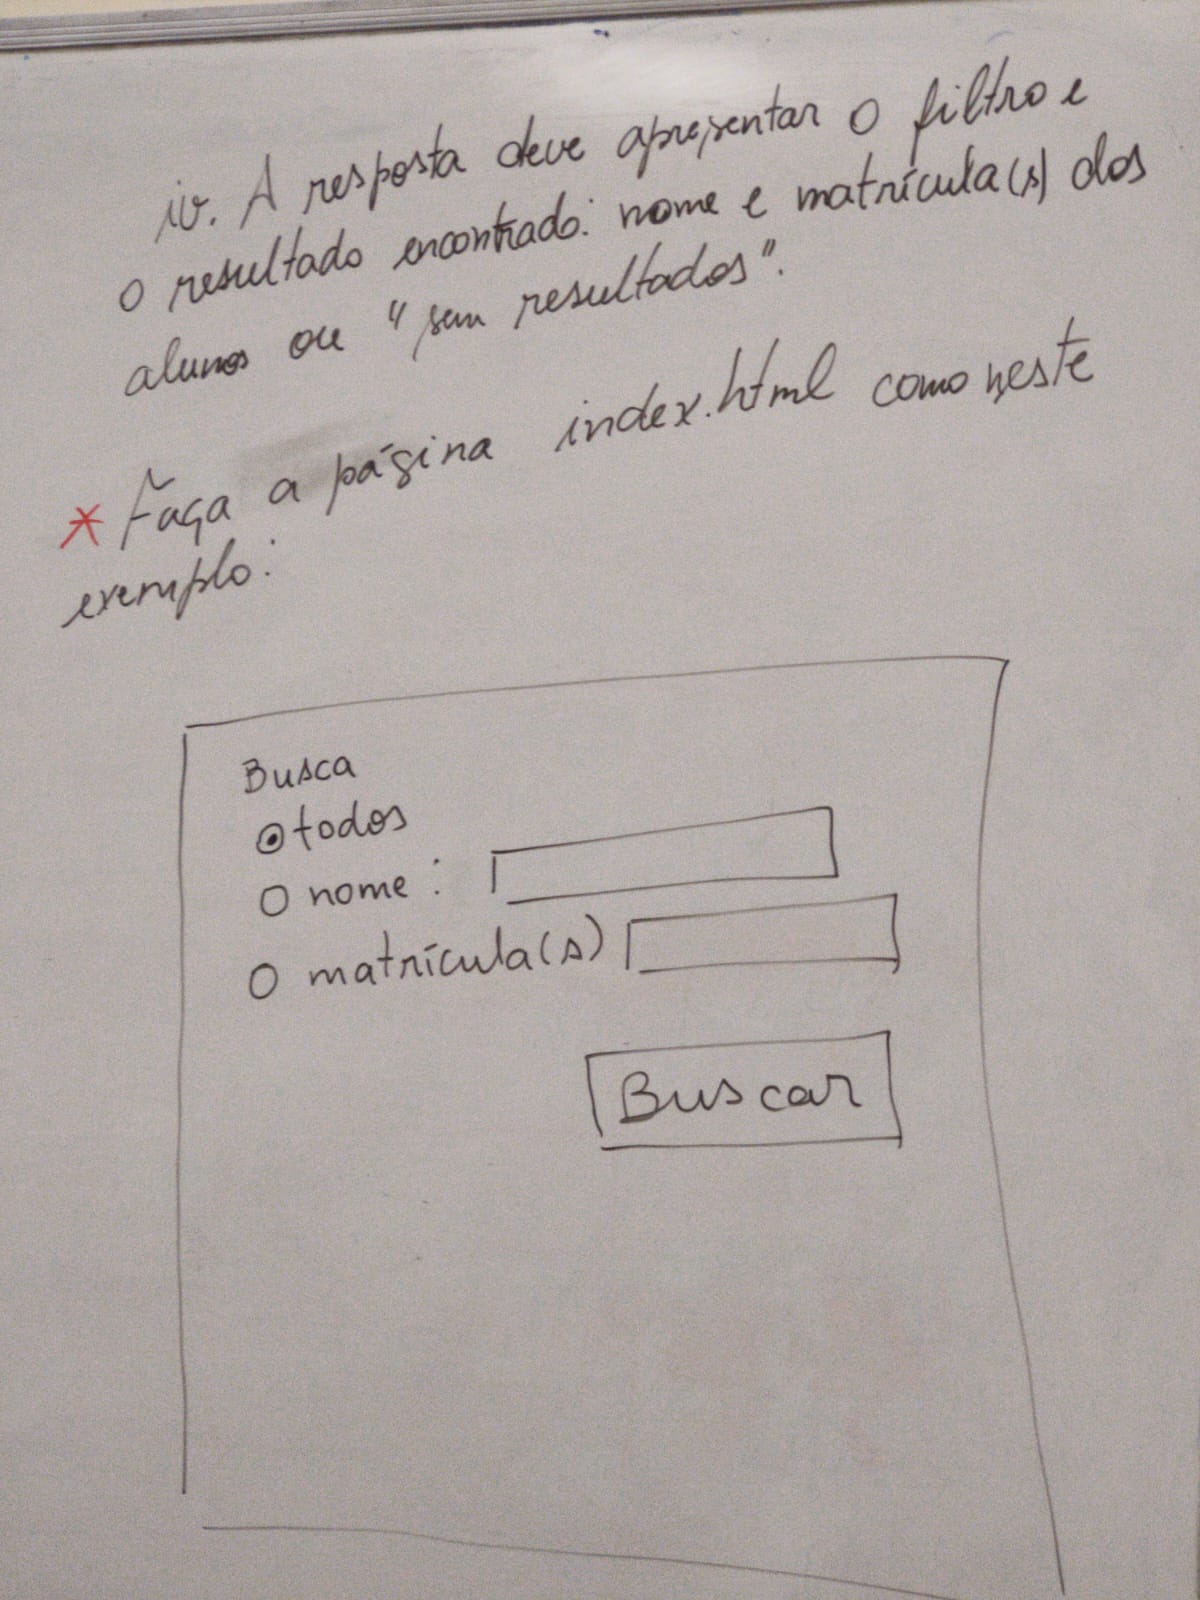 iv. A resposta deve apresentar o filtro e
o resultado encontrado: nome e matrícula(s) dos
alunos ou "sem resultados".
* Faça a página index.html como neste
exemplo:
Busca
todos
nome:
matrícula(s)
Buscar